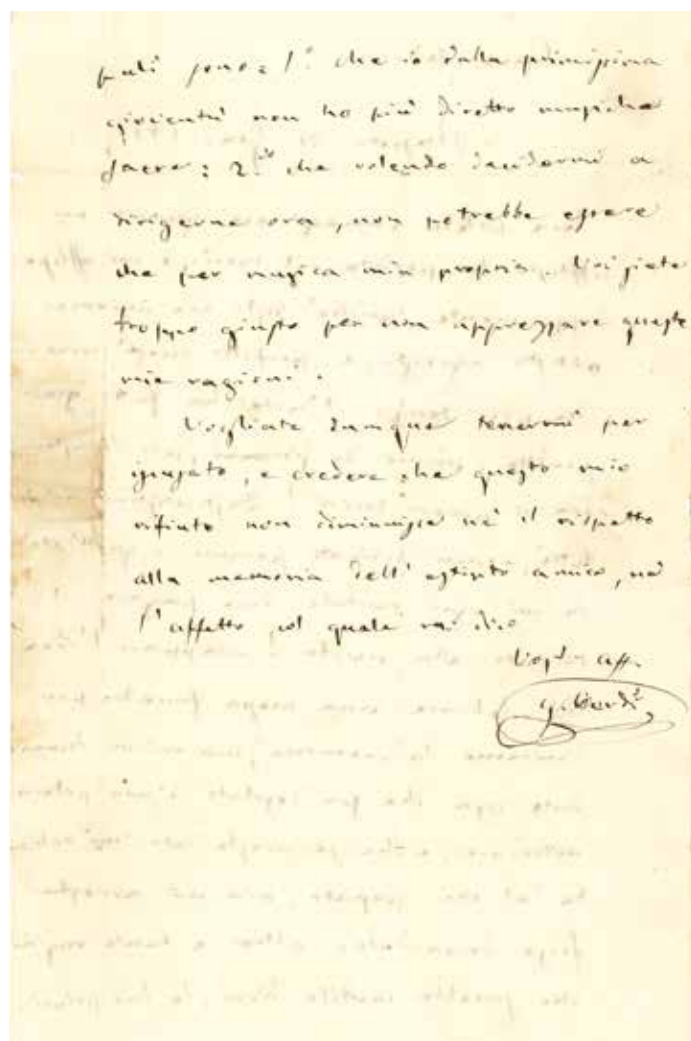 pali sono: 1º che io dalla primissima
gioventù non ho più diretto musiche
sacre: 2do che volendo decidermi a
dirigerne ora, non potrebbe essere
che per musica mia propria. Voi siete
troppo giusto per non apprezzare queste
mie ragioni.
Vogliate dunque tenermi per
iscusato, e credere che questo mio
rifiuto non diminuisce nè il rispetto
alla memoria dell' estinto amico, nè
l' affetto col quale mi dico
Vostro aff.
G. Verdi